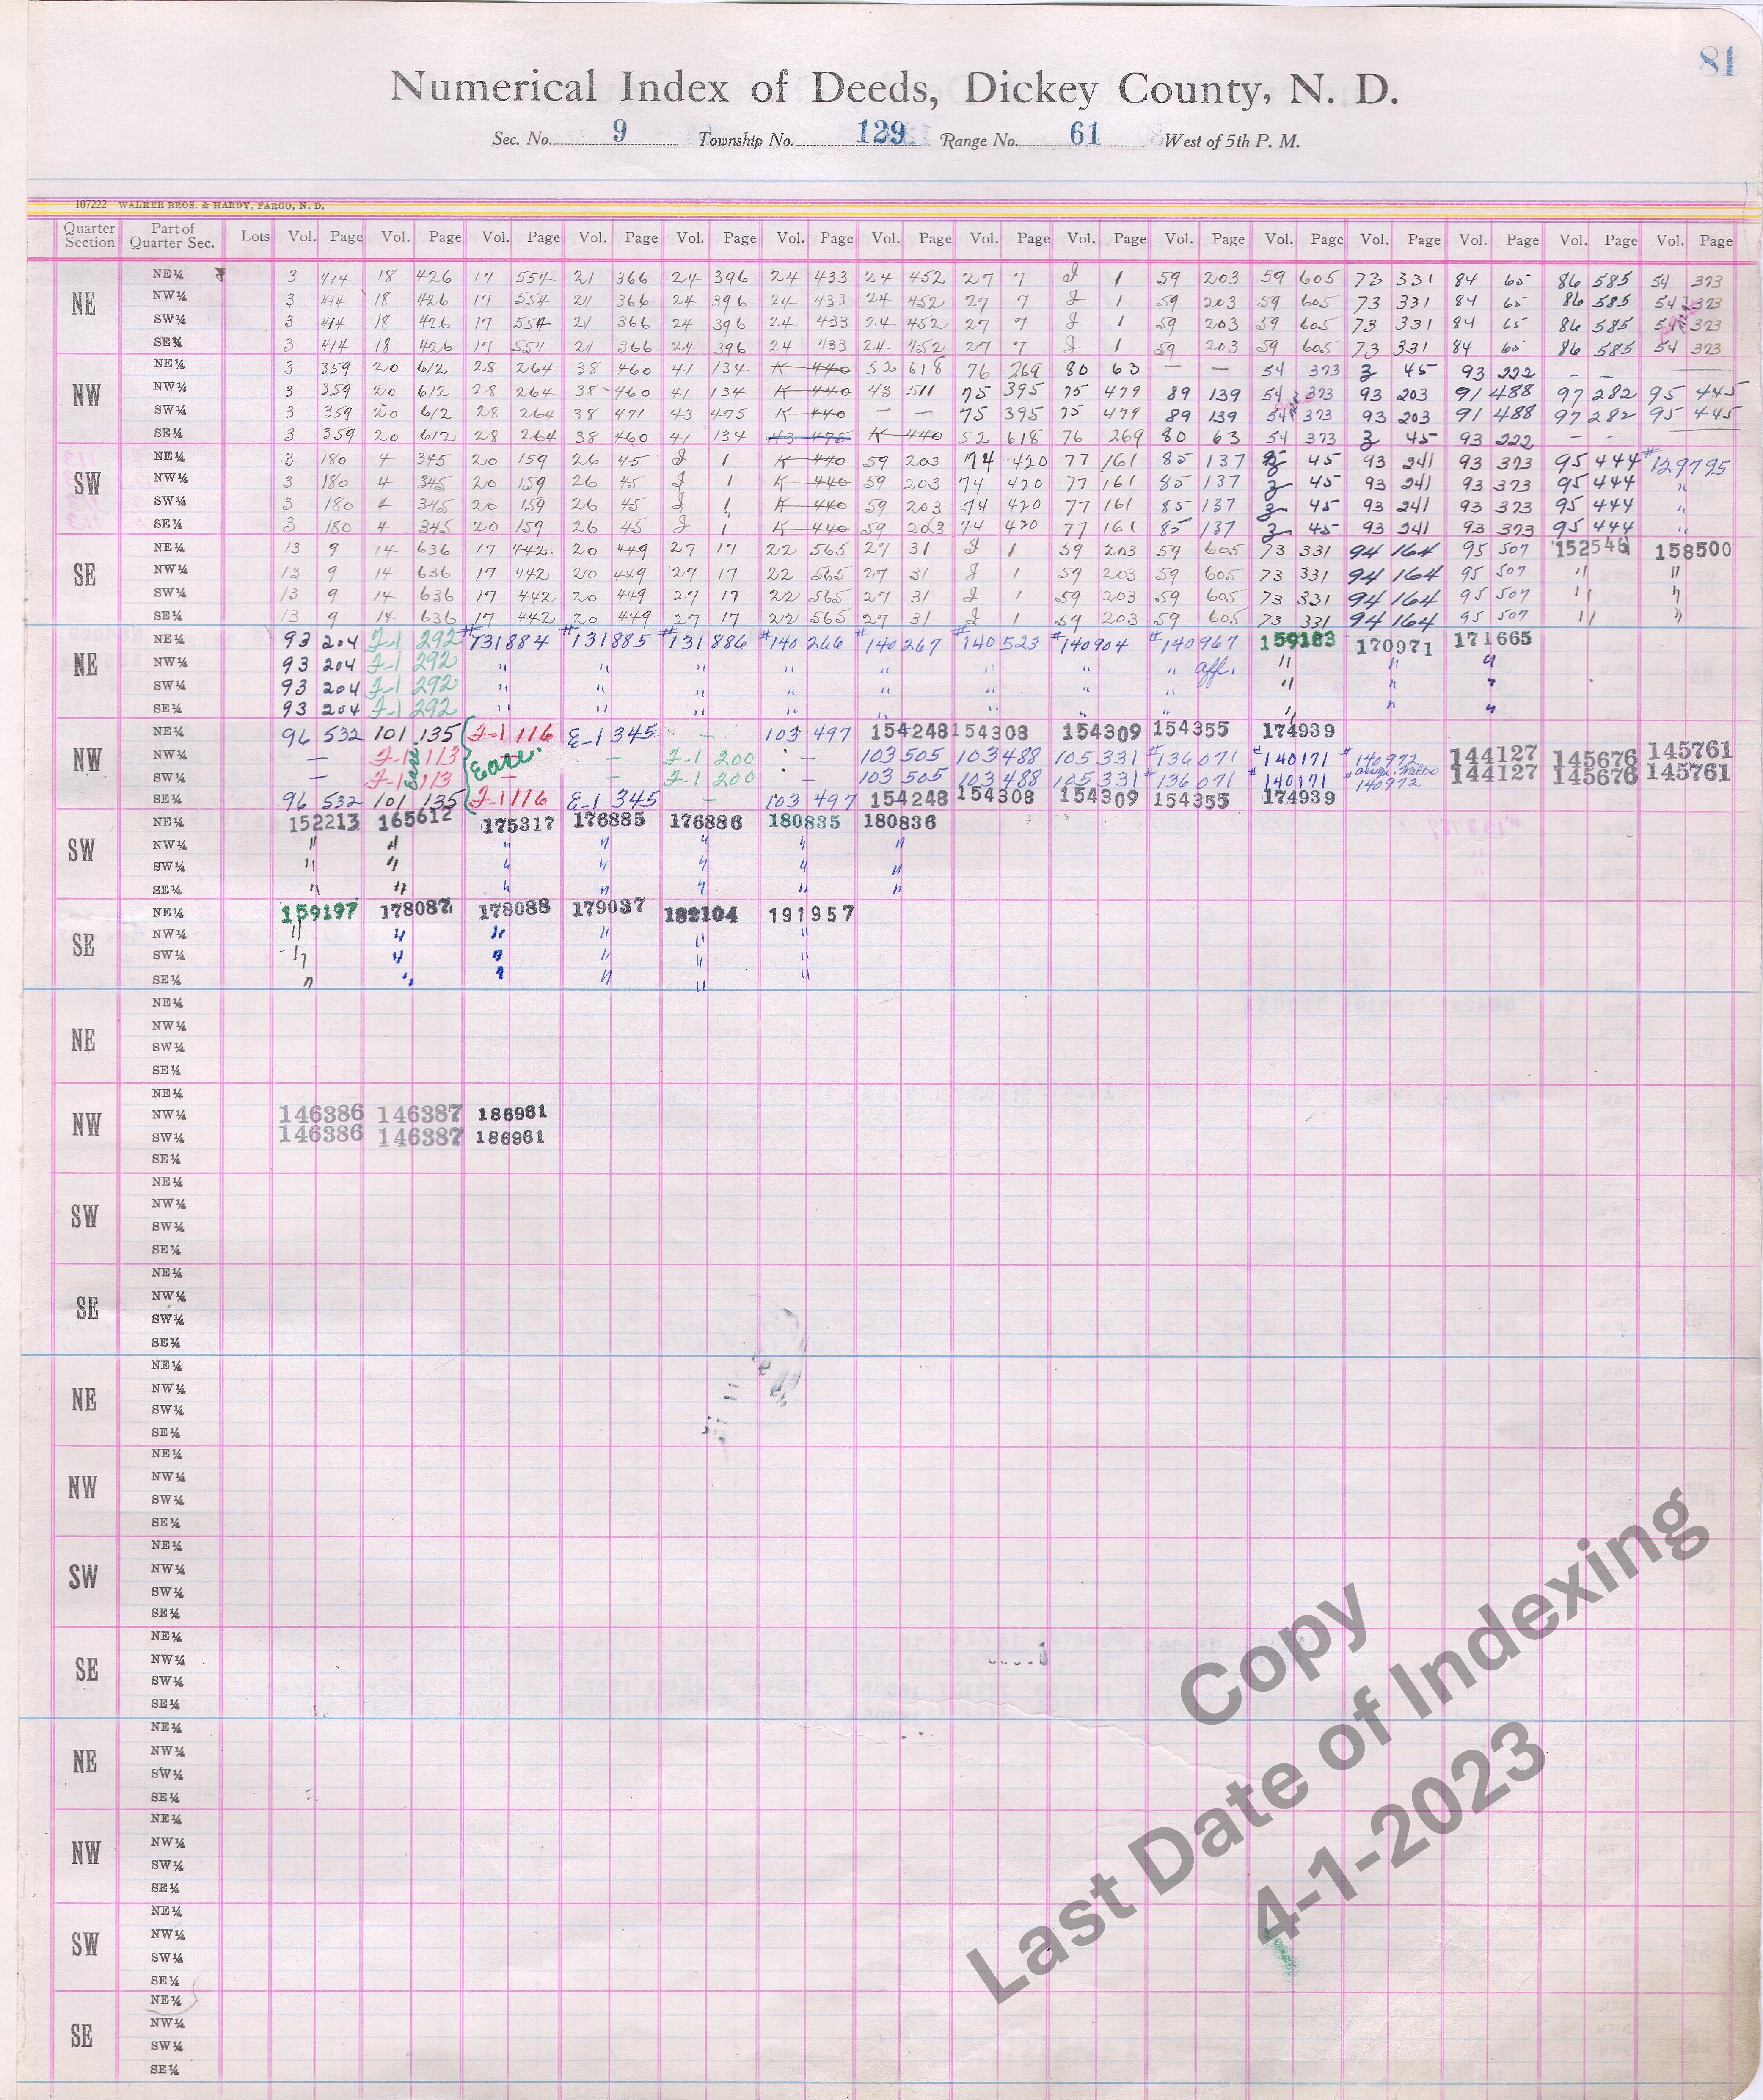 81
Numerical Index of Deeds, Dickey County, N. D.
Sec. No. 9 Township No. 129 Range No. 61 West of 5th P. M.
107222 WALKER BROS. & HARDY, FARGO, N. D.
Quarter Section Part of Quarter Sec. Lots Vol. Page Vol. Page Vol. Page Vol. Page Vol. Page Vol. Page Vol. Page Vol. Page Vol. Page Vol. Page Vol. Page Vol. Page Vol. Page Vol. Page Vol. Page
NE
NE¼ 3 414 18 426 17 554 21 366 24 396 24 433 24 452 27 7 J 1 59 203 59 605 73 331 84 65 86 585 54 373
NW¼ 3 414 18 426 17 554 21 366 24 396 24 433 24 452 27 7 J 1 59 203 59 605 73 331 84 65 86 585 54 323
SW¼ 3 414 18 426 17 554 21 366 24 396 24 433 24 452 27 7 J 1 59 203 59 605 73 331 84 65 86 585 54 323
SE¼ 3 414 18 426 17 554 21 366 24 396 24 433 24 452 27 7 J 1 59 203 59 605 73 331 84 65 86 585 54 373
NW
NE¼ 3 359 20 612 28 264 38 460 41 134 K 440 52 618 76 269 80 63 — — 54 373 3 45 93 222 — —
NW¼ 3 359 20 612 28 264 38 460 41 134 K 440 43 511 75 395 75 479 89 139 54 373 93 203 91 488 97 282 95 445
SW¼ 3 359 20 612 28 264 38 471 43 475 K 440 — — 75 395 75 479 89 139 54 373 93 203 91 488 97 282 95 445
SE¼ 3 359 20 612 28 264 38 460 41 134 43 475 K 440 52 618 76 269 80 63 54 373 3 45 93 222 - -
SW
NE¼ 3 180 4 345 20 159 26 45 J 1 K 440 59 203 74 420 77 161 85 137 3 45 93 241 93 373 95 444 #129795
NW¼ 3 180 4 345 20 159 26 45 J 1 K 440 59 203 74 420 77 161 85 137 3 45 93 241 93 373 95 444 "
SW¼ 3 180 4 345 20 159 26 45 J 1 K 440 59 203 74 420 77 161 85 137 3 45 93 241 93 373 95 444 "
SE¼ 3 180 4 345 20 159 26 45 J 1 K 440 59 203 74 420 77 161 85 137 3 45 93 241 93 373 95 444 "
SE
NE¼ 13 9 14 636 17 442 20 449 27 17 22 565 27 31 J 1 59 203 59 605 73 331 94 164 95 507 152546 158500
NW¼ 13 9 14 636 17 442 20 449 27 17 22 565 27 31 J 1 59 203 59 605 73 331 94 164 95 507 " "
SW¼ 13 9 14 636 17 442 20 449 27 17 22 565 27 31 J 1 59 203 59 605 73 331 94 164 95 507 " "
SE¼ 13 9 14 636 17 442 20 449 27 17 22 565 27 31 J 1 59 203 59 605 73 331 94 164 95 507 " "
NE
NE¼ 93 204 F-1 292 #131884 #131885 #131886 #140266 #140267 #140523 #140904 #140967 159183 170971 171665
NW¼ 93 204 F-1 292 " " " " " " " " aff. " " "
SW¼ 93 204 F-1 292 " " " " " " " " " " "
SE¼ 93 204 F-1 292 " " " " " " " " " " "
NW
NE¼ 96 532 101 135 F-1 116 E-1 345 — 103 497 154248 154308 154309 154355 174939
NW¼ — F-1 113 Ease. Ease. — F-1 200 - 103 505 103 488 105 331 #136071 #140171 #140972 144127 145676 145761
SW¼ — F-1 113 — — F-1 200 - — 103 505 103 488 105 331 #136071 #140171 140972 144127 145676 145761
SE¼ 96 532 101 135 F-1 116 E-1 345 — 103 497 154248 154308 154309 154355 174939
SW
NE¼ 152213 165612 175317 176885 176886 180835 180836
NW¼ " " " " " " "
SW¼ " " " " " " "
SE¼ " " " " " " "
SE
NE¼ 159197 178087 178088 179037 182104 191957
NW¼ " " " " " "
SW¼ " " " " " "
SE¼ " " " " " "
NE
NE¼
NW¼
SW¼
SE¼
NW
NE¼
NW¼ 146386 146387 186961
SW¼ 146386 146387 186961
SE¼
SW
NE¼
NW¼
SW¼
SE¼
SE
NE¼
NW¼
SW¼
SE¼
NE
NE¼
NW¼
SW¼
SE¼
NW
NE¼
NW¼
SW¼
SE¼
SW
NE¼
NW¼
SW¼
SE¼
SE
NE¼
NW¼
SW¼
SE¼
NE
NE¼
NW¼
SW¼
SE¼
NW
NE¼
NW¼
SW¼
SE¼
SW
NE¼
NW¼
SW¼
SE¼
SE
NE¼
NW¼
SW¼
SE¼
Copy
Last Date of Indexing
4-1-2023